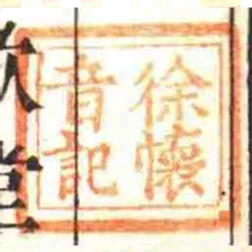 徐懷
音記